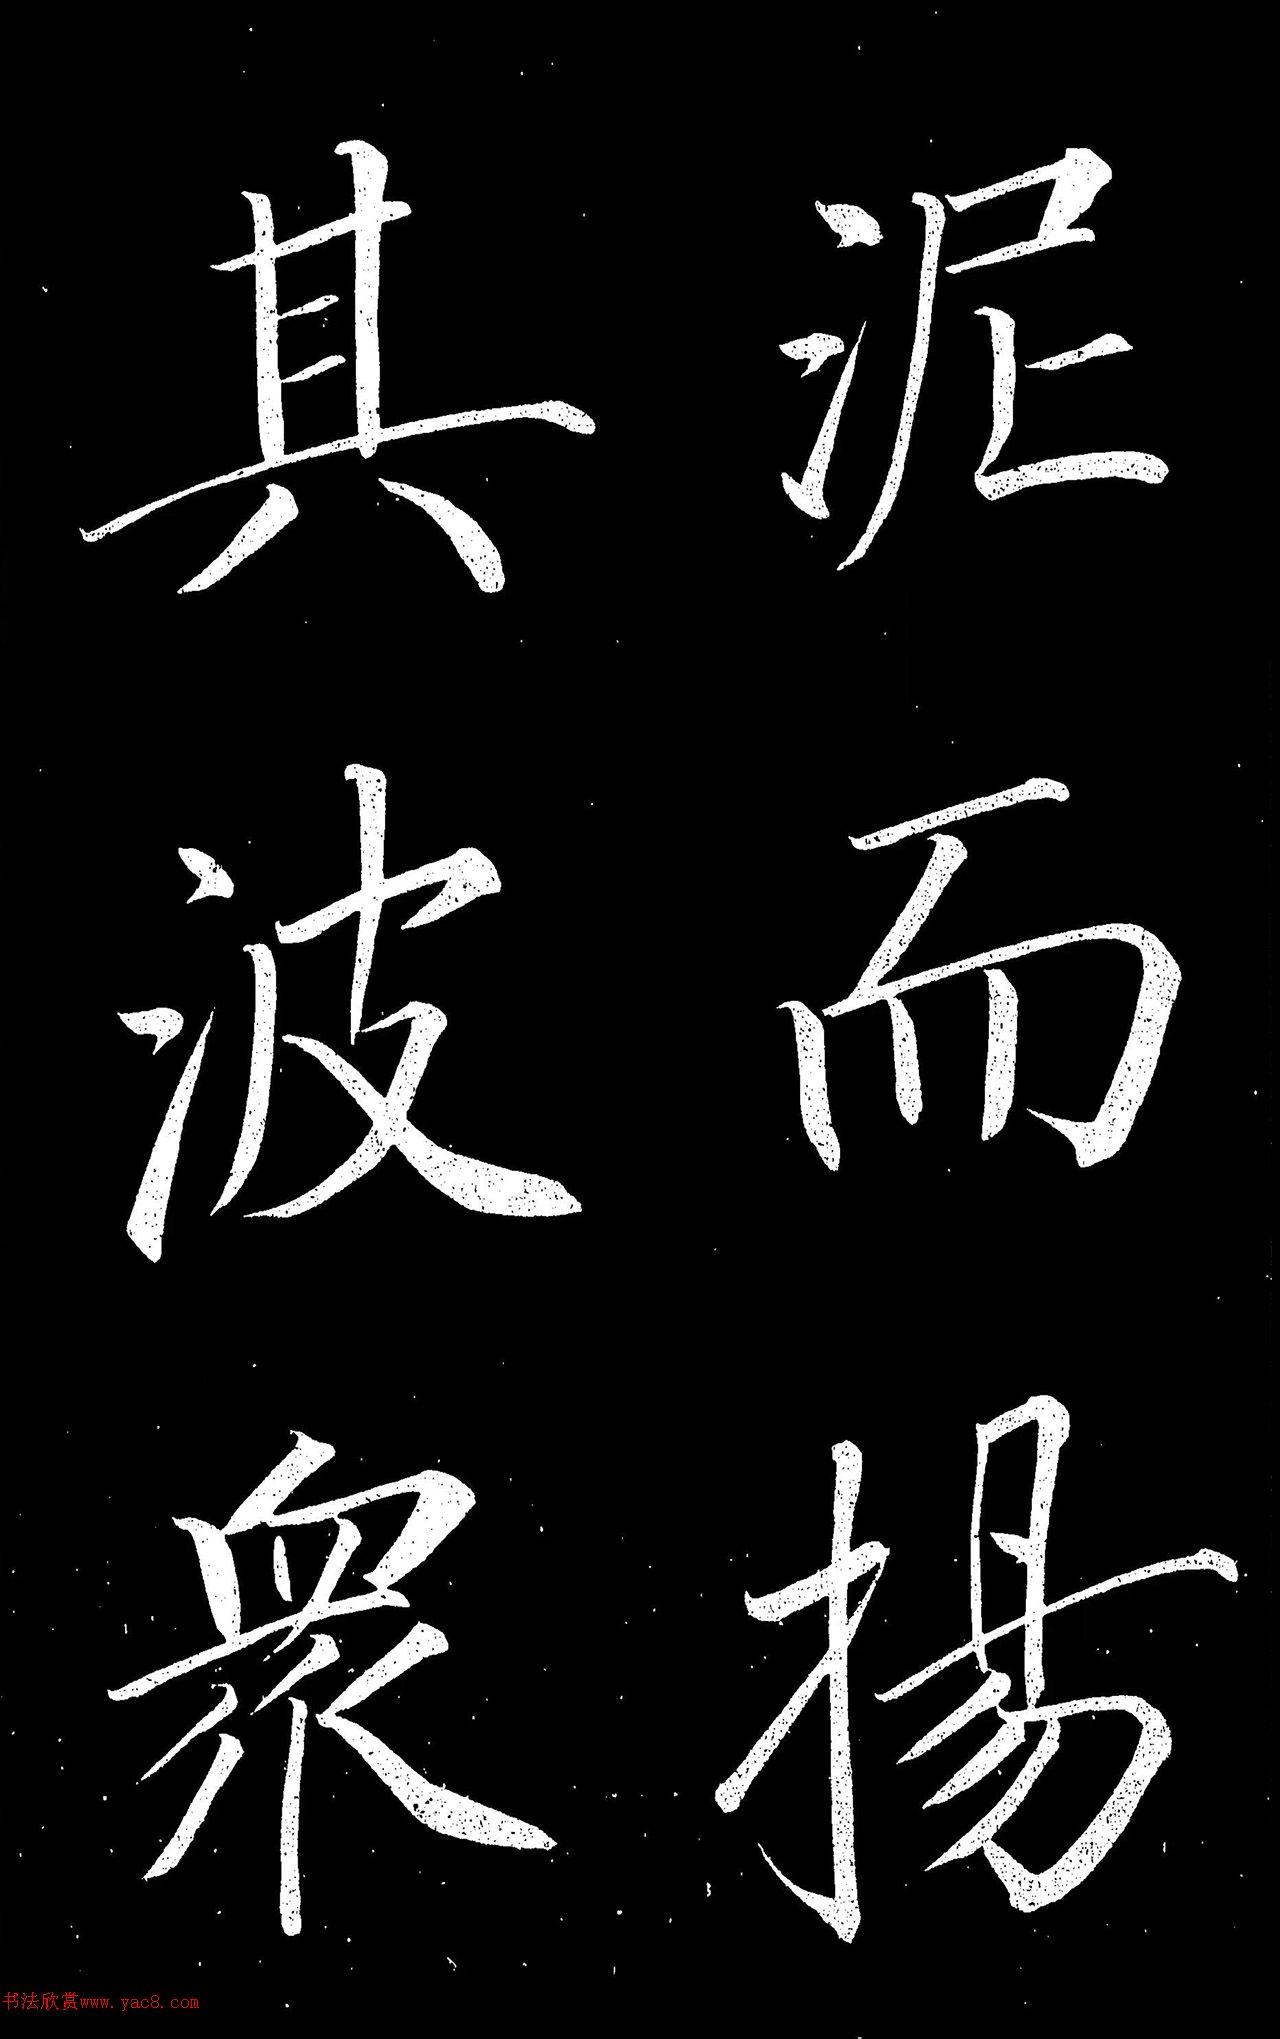 泥而揚
其波衆
书法欣赏www.yac8.com